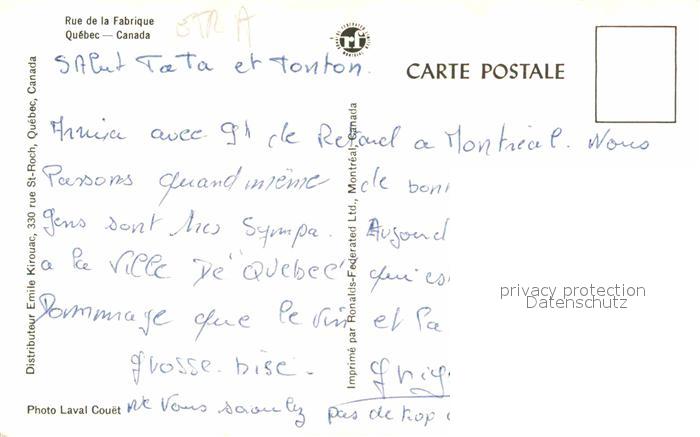 Rue de la Fabrique
Québec — Canada
ETR A
CARTE POSTALE
Salut Tata et Tonton.
avec 9h de Retard a Montréal. Nous
Passons quand même de bon
gens sont très Sympa. Aujourd
a la Ville De "Quebec" qui es
Dommage que le vin et la
grosse bise.
Photo Laval Couët
Ne Vous saoulez pas de trop
Distributeur Emile Kirouac, 330 rue St-Roch, Québec, Canada
Imprimé par Ronalds-Federated Ltd., Montréal, Canada
privacy protection
Datenschutz